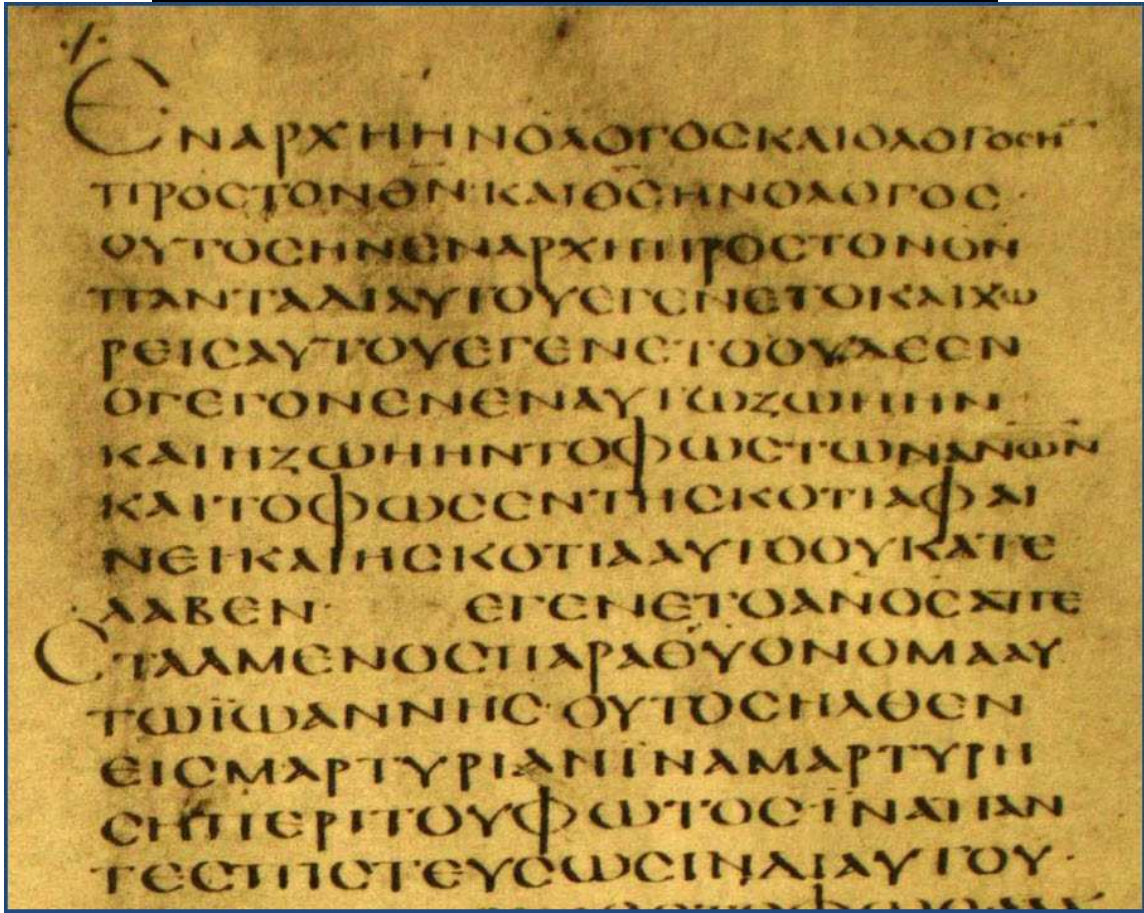 ΕΝΑΡΧΗΗΝΟΛΟΓΟϹΚΑΙΟΛΟΓΟϹΗ̅
ΠΡΟϹΤΟΝΘ̅Ν̅·ΚΑΙΘ̅Ϲ̅ΗΝΟΛΟΓΟϹ·
ΟΥΤΟϹΗΝΕΝΑΡΧΗΠΡΟϹΤΟΝΘ̅Ν̅
ΠΑΝΤΑΔΙΑΥΤΟΥΕΓΕΝΕΤΟΚΑΙΧΩ
ΡΕΙϹΑΥΤΟΥΕΓΕΝΕΤΟΟΥΔΕΕΝ
ΟΓΕΓΟΝΕΝΕΝΑΥΤΩΖΩΗΗΝ·
ΚΑΙΗΖΩΗΗΝΤΟΦΩϹΤΩΝΑ̅Ν̅Ω̅Ν̅
ΚΑΙΤΟΦΩϹΕΝΤΗϹΚΟΤΙΑΦΑΙ
ΝΕΙΚΑΙΗϹΚΟΤΙΑΑΥΤΟΟΥΚΑΤΕ
ΛΑΒΕΝ· ΕΓΕΝΕΤΟΑ̅Ν̅Ο̅Ϲ̅ΑΠΕ
ϹΤΑΛΜΕΝΟϹΠΑΡΑΘ̅Υ̅ΟΝΟΜΑΑΥ
ΤΩΪΩΑΝΝΗϹ·ΟΥΤΟϹΗΛΘΕΝ
ΕΙϹΜΑΡΤΥΡΙΑΝΪΝΑΜΑΡΤΥΡΗ
ϹΗΠΕΡΙΤΟΥΦΩΤΟϹ·ΪΝΑΠΑΝ
ΤΕϹΠΙϹΤΕΥϹΩϹΙΝΔΙΑΥΤΟΥ·